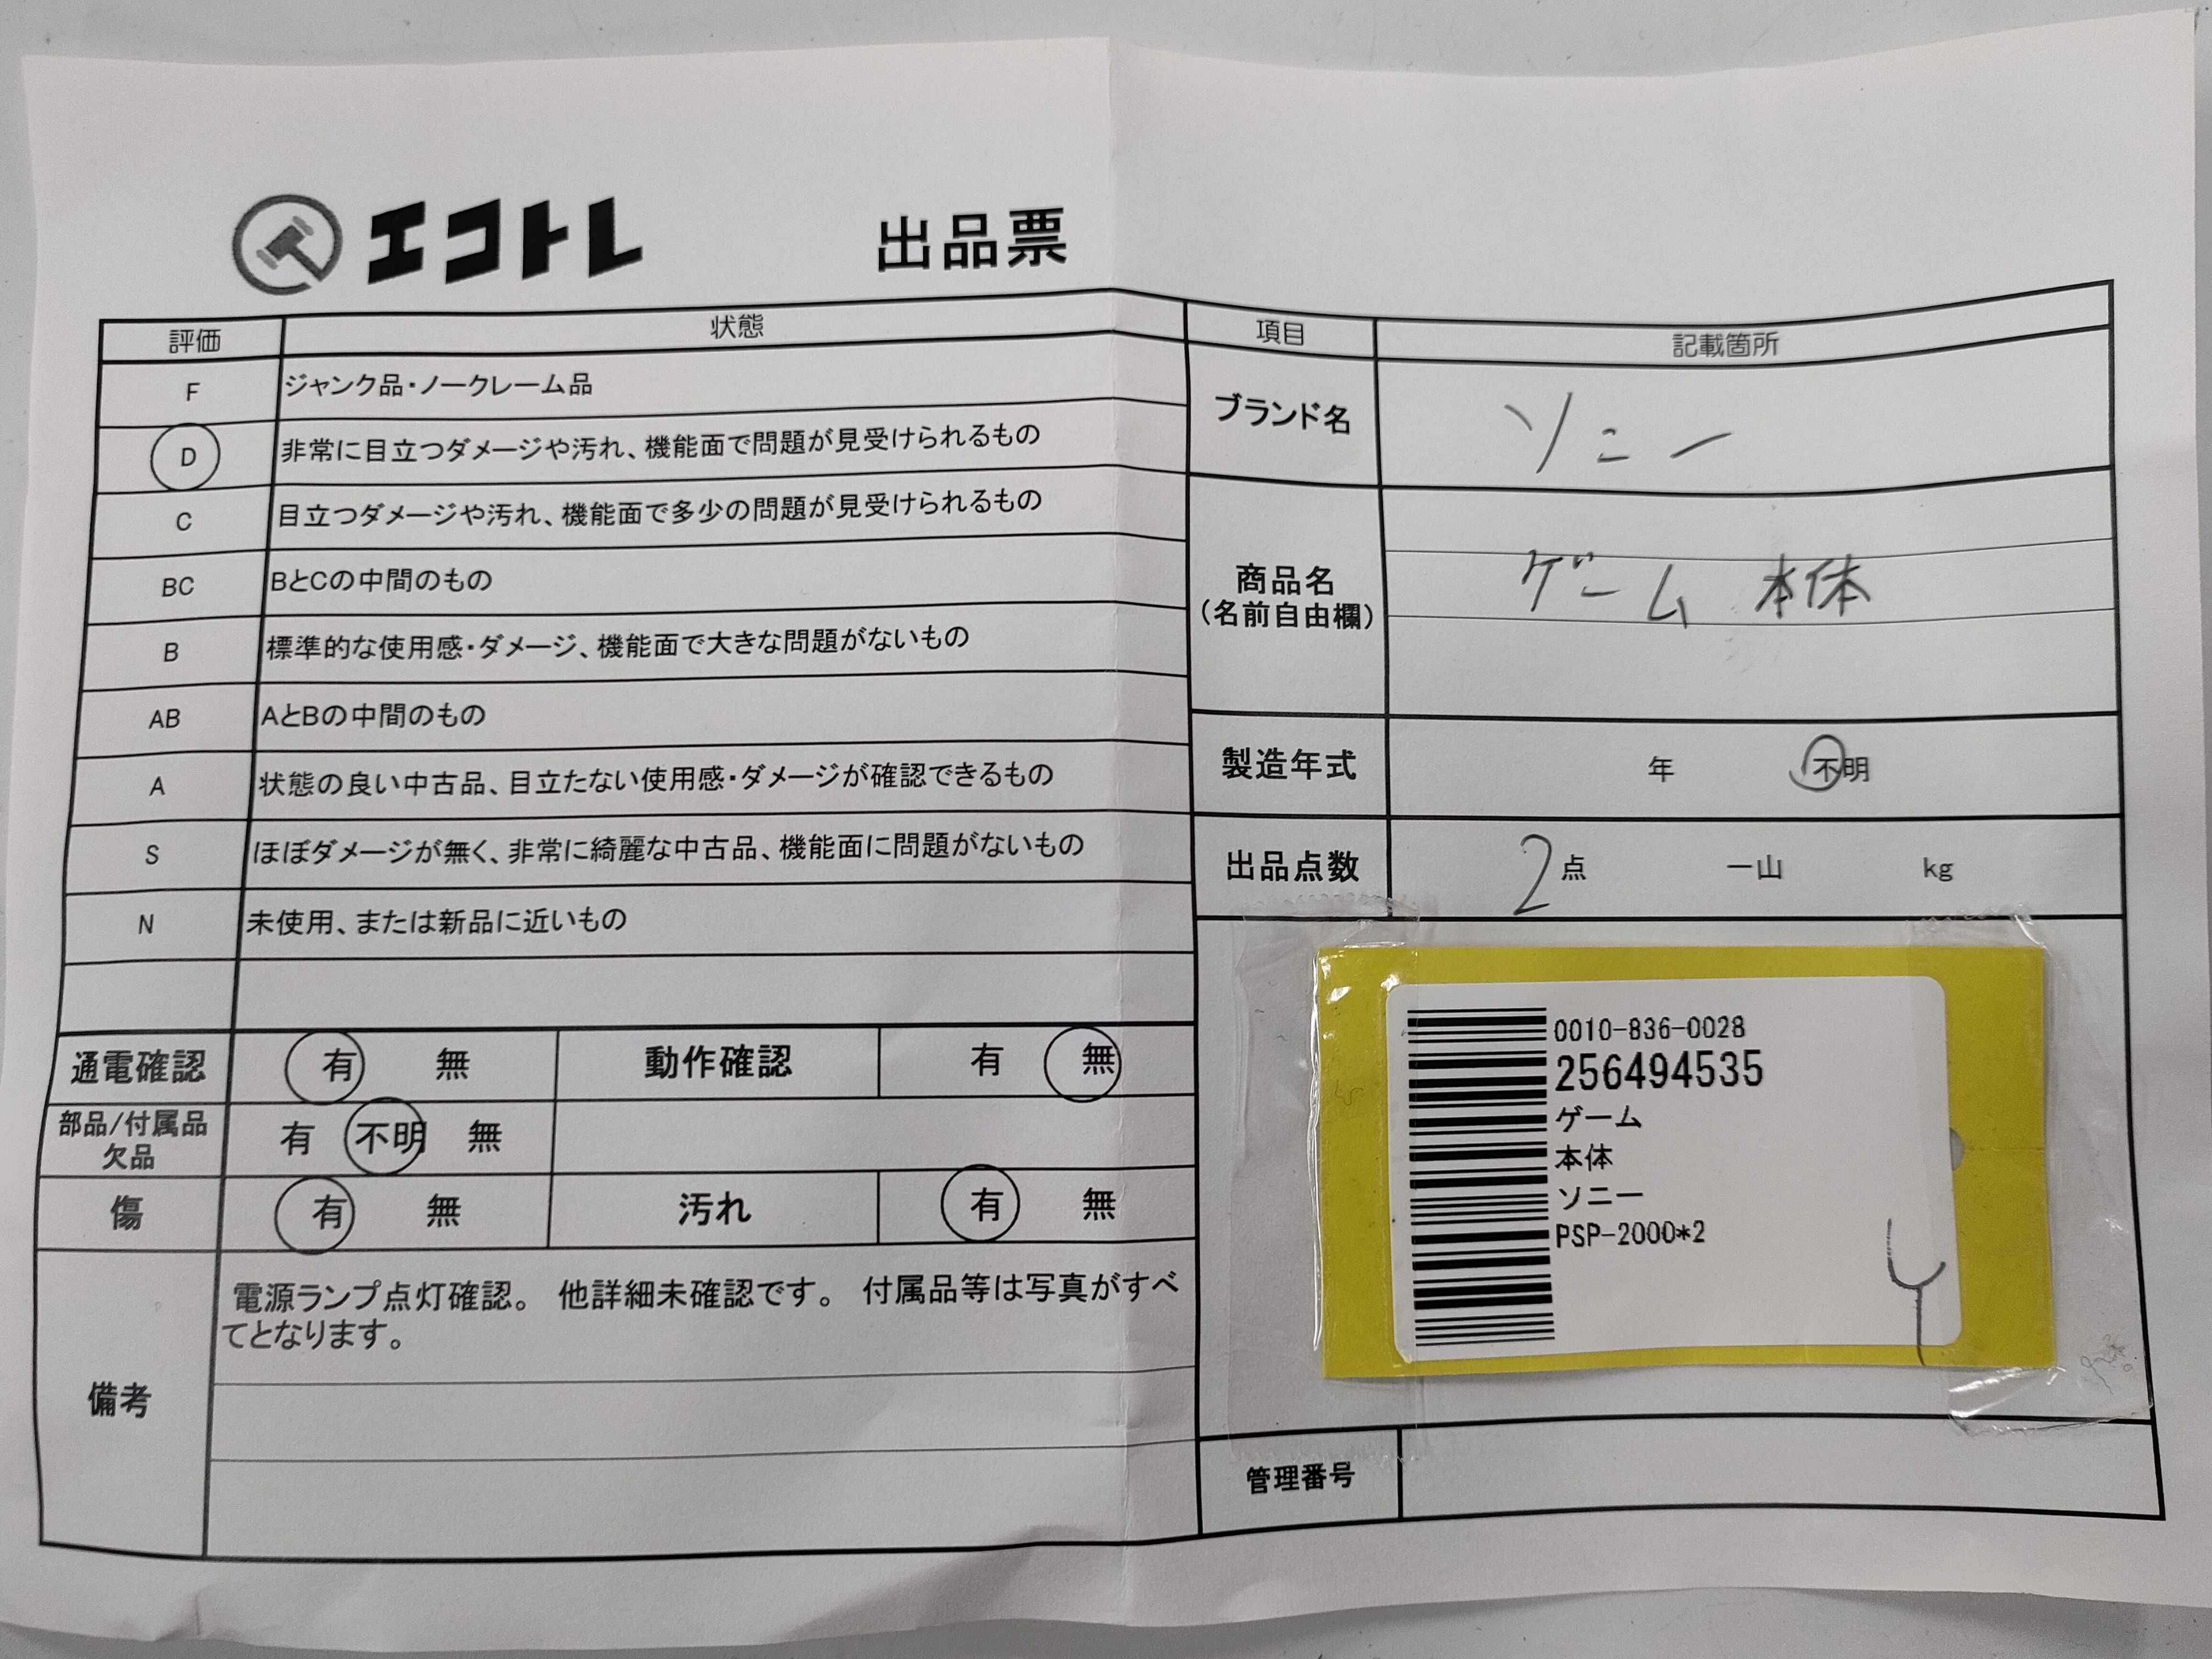 エコトレ 出品票
評価 状態
F ジャンク品・ノークレーム品
D 非常に目立つダメージや汚れ、機能面で問題が見受けられるもの
C 目立つダメージや汚れ、機能面で多少の問題が見受けられるもの
BC BとCの中間のもの
B 標準的な使用感・ダメージ、機能面で大きな問題がないもの
AB AとBの中間のもの
A 状態の良い中古品、目立たない使用感・ダメージが確認できるもの
S ほぼダメージが無く、非常に綺麗な中古品、機能面に問題がないもの
N 未使用、または新品に近いもの
通電確認 有 無 動作確認 有 無
部品/付属品
欠品 有 不明 無
傷 有 無 汚れ 有 無
備考
電源ランプ点灯確認。 他詳細未確認です。 付属品等は写真がすべ
てとなります。
項目 記載箇所
ブランド名 ソニー
商品名
(名前自由欄)
ゲーム 本体
製造年式 年 不明
出品点数 2点 一山 kg
0010-836-0028
256494535
ゲーム
本体
ソニー
PSP-2000*2
管理番号